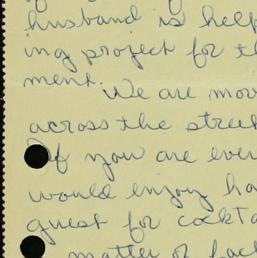 husband is help
ing project for th
ment.
We are mov
across the street
If you are ever
would enjoy ha
guest for cockta
matter of fac